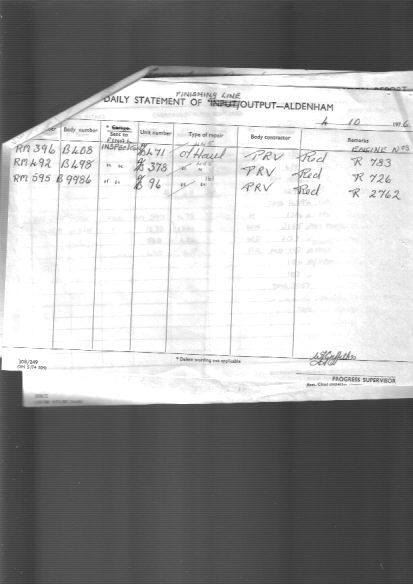 FINISHING LINE
DAILY STATEMENT OF *INPUT/OUTPUT—ALDENHAM
4 10 1976
Body number * Sent to Unit number Type of repair Body contractor Remarks
INSPECTION ENGINE NOS
RM396 B408 471 O/Haul PRV Red R 783
RM492 B498 " " 378 " " PRV Red R 726
RM595 B9986 " " 96 " " PRV Red R 2762
308/249
* Delete wording not applicable
PROGRESS SUPERVISOR